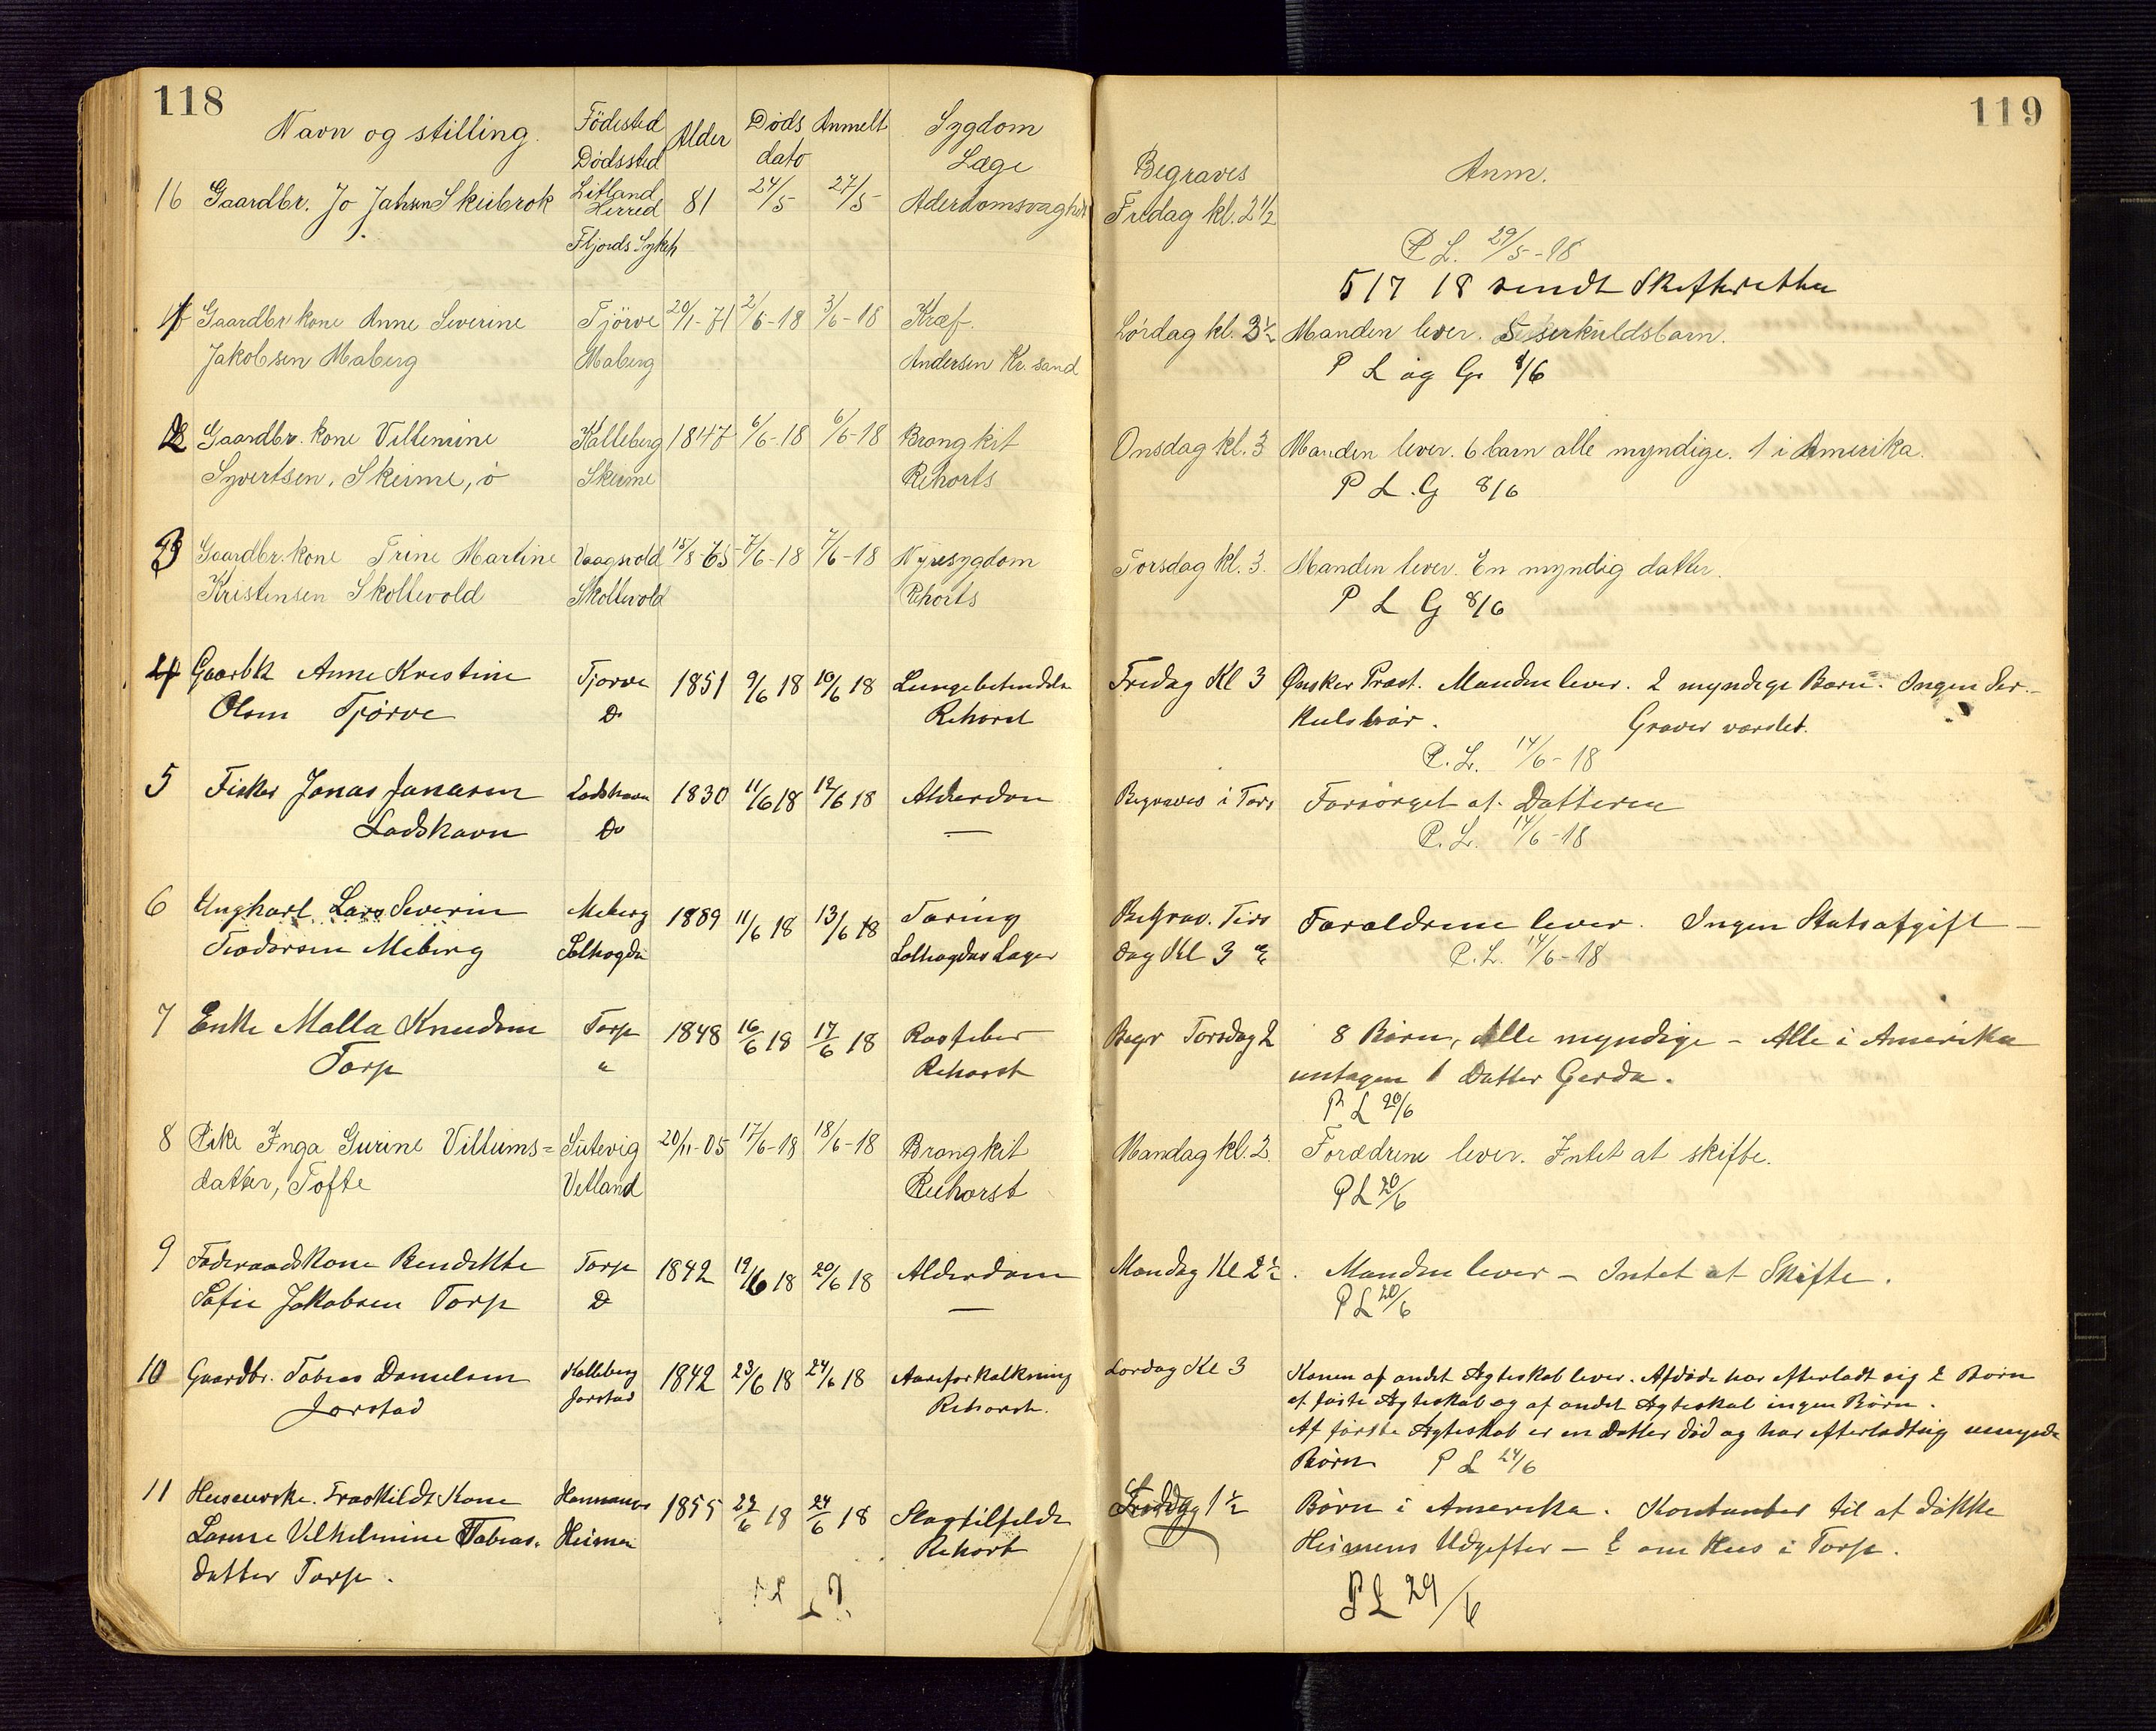 118
Navn og stilling.
Födested
Dödssted
Alder
Döds
dato
Anmelt
Sygdom
Læge
16 Gaardbr. Jo Jahnsn Skeibrok
Litland
Herred
Fljords Sykeh
81 24/5 27/5
Alderdomsvaghed
1 Gaardbr kone Anne Severine Tjörve 20/1-71 2/6-18 3/6-18 Kræf.
Jakobsen Maberg Maberg Andersen Kr. sand
2 Gaardbr. kone Villemine Kalleberg 1847 6/6-18 6/6-18 Brongkit
Syvertsen, Skeime, ö Skeime Rehorts
3 Gaardbr. kone Trine Martine Vaagsvold 15/8-65 7/6-18 7/6-18 Nyresygdom
Kristensen Skollevold Skollevold Rhorts
4 Gaarbk Anne Kristine Tjorve 1851 9/6 18 10/6 18 Lungebetendels
Olsen Tjørve Do Rehorst
5 Fisker Jonas Jonasen Ladshavn 1830 11/6 18 12/6 18 Alderdom
Ladshavn Do —
6 Ungkarl Lars Severin Meberg 1889 11/6 18 13/6 18 Tæring
Teodorsen Meberg Solhøgda Solhøgdas Læger
7 Enke Malla Knudsen Torp 1848 16/6 18 17/6 18 Rosfeber
Torp " Rehorst
8 Pike Inga Gurine Villums= Sutevig 20/11-05 17/6-18 18/6-18 Brongkit
datter, Tofte Vetland Rehorst
9 Föderaadskone Bendikte Torp 1842 19/6 18 20/6 18 Alderdom
Sofie Jakobsen Torp D —
10 Gaardbr. Tobias Danielsen Kalleberg 1842 23/6 18 24/6 18 Aareforkalkning
Jorstad Jorstad Rehorst.
11 Huseierske. Fraskildt Kone 1855 22/6 18 24/6 18 Slagtilfelde
Vilhelmine Tobias- Heimen Rehorst
datter Torp.
119
Begraves Anm.
Fredag kl. 2 1/2
P L. 29/5-18
5/7 18 sendt Skifteretten
Lördag kl. 3 1/2 Manden lever. 5 serkuldsbarn.
P L og G 8/6
Onsdag kl. 3 Manden lever. 6 barn alle myndige. 1 i Amerika.
P L. G 8/6
Torsdag kl. 3. Manden lever. En myndig datter.
P L G 8/6
Fredag Kl 3 Ønsker Præst. Manden lever. 2 myndige Børn. Ingen Sær-
kulsbør. Graver varslet.
P. L. 14/6-18
Begraves i Tors Forsörget af Datteren
P. L. 14/6-18
Begrav. Tirs Forældrene lever. Ingen Statsafgift —
dag Kl 3 P. L. 14/6-18
Begr Torsdag 2 8 Börn, Alle myndige - Alle i Amerika
untagen 1 Datter Gerda.
P L 20/6
Mandag kl. 2 Forældrene lever. Intet at skifte.
P L 20/6
Mandag Kl 2 1/2. Manden lever - Intet at Skifte.
P L 20/6
Lordag Kl 3 Konen af andet Agteskab lever. Afdöde har efterladt sig 2 Börn
af förste Agteskab og af andet Agteskab ingen Börn.
Af förste Agteskab er en Datter död og har efterladtsig
Börn P L 24/6
1 1/2 Börn i Amerika. Kontanter til at dække
Heimens Udgifter - om Hus i Torp.
P L 29/6